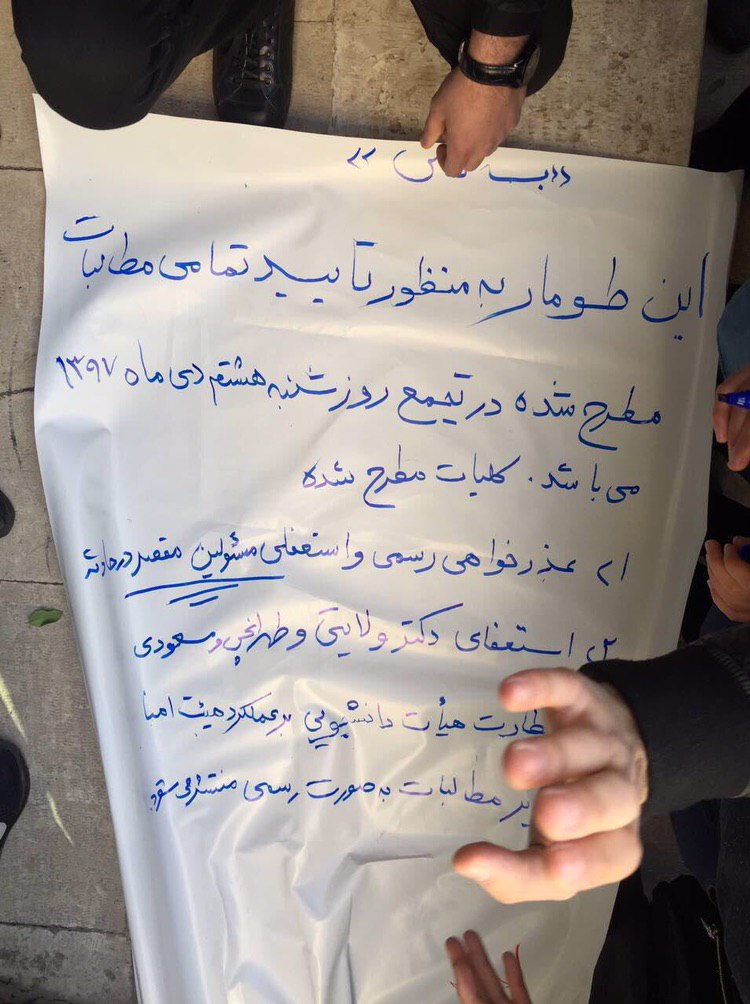 این طومار به منظور تایید تمامی مطالبات
مطرح شده در تجمع روز شنبه هشتم دی ماه ۱۳۹۷
می باشد. کلیات مطرح شده
۱) عذرخواهی رسمی و استعفای مسئولین مقصر در حادثه
۲) استعفای دکتر ولایتی و طهرانچی و مسعودی
هیأت دانشجویی بر عملکرد هیئت امنا
مطالبات به صورت رسمی منتشر می شود.